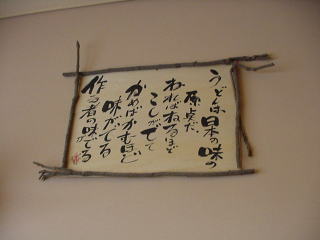 うどんは日本の味の
原点だ
ねればねるほど
こしがでて
かめばかむほど
味がでてる
作る者の味がでてる